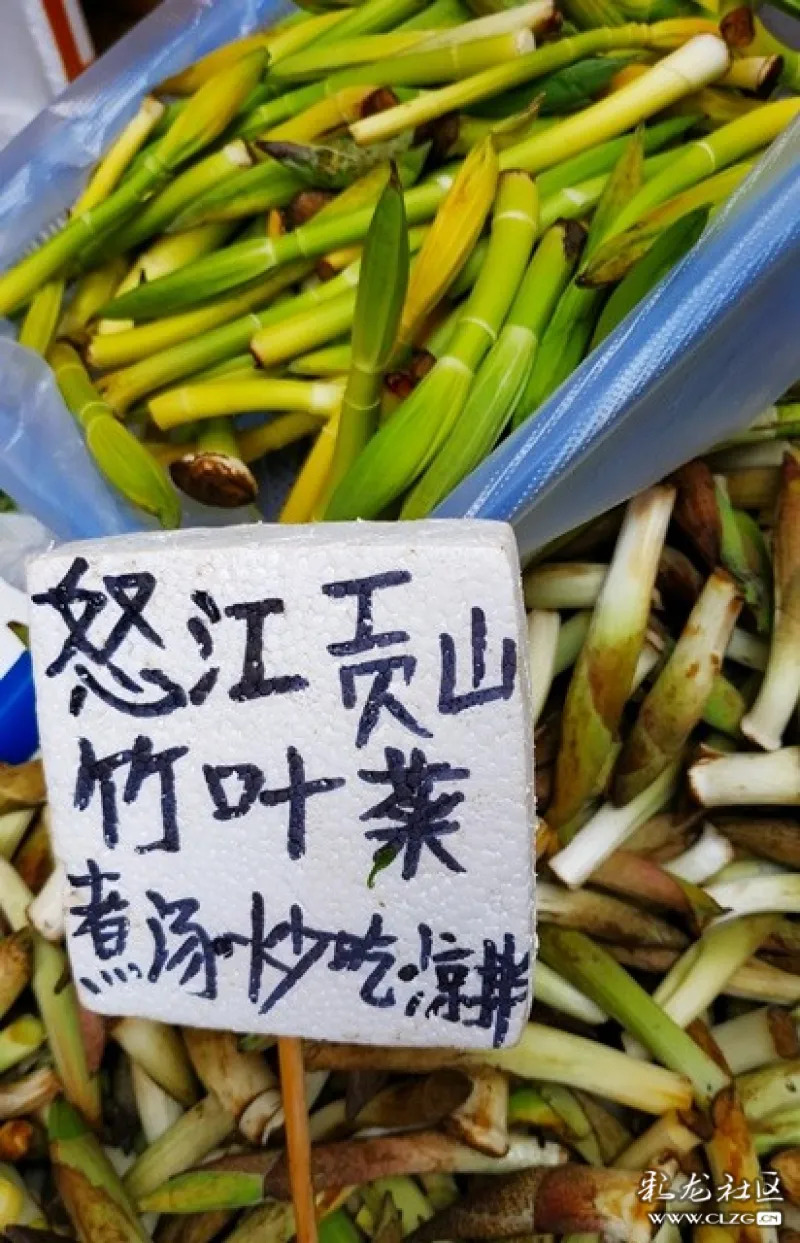 怒江贡山
竹叶菜
煮汤炒吃凉拌
彩龙社区
WWW.CLZG.CN